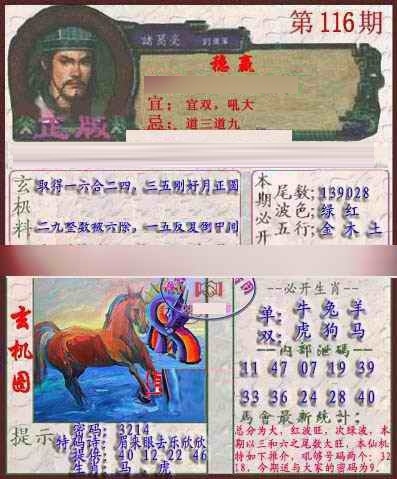 第116期
諸葛亮
稳赢
宜：宜双，吼大
忌：道三道九
正版
玄机料
取得一六合二四，三五刚好月正圆
二九整数被六除，一五反复倒中间
本期必开
尾数：139028
波色：绿 红
五行：金 木 土
玄机图
必开生肖
单：牛 兔 羊
双：虎 狗 马
内部泄码
11 47 07 19 39
33 36 24 28 40
馬會最新統計：
总分为大，红波旺，次绿波，本
期以三和六之尾数大旺，本仙机
特如下推介，吼够号码两个：32
18，今期送与大家的密码为9.
提示
密码：3214
特码诗：眉来眼去乐欣欣
提倍：40 12 22 46
生肖：马 虎